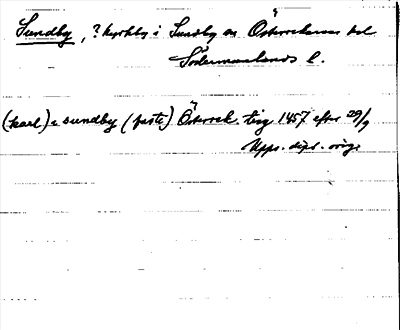 Sundby, ? kyrkby i Sundby sn Österrekarne hd
Södermanlands l.
(karl) i sundby (faste) Österrek. ting 1457 efter 29/9
Upps. dipl. orig.